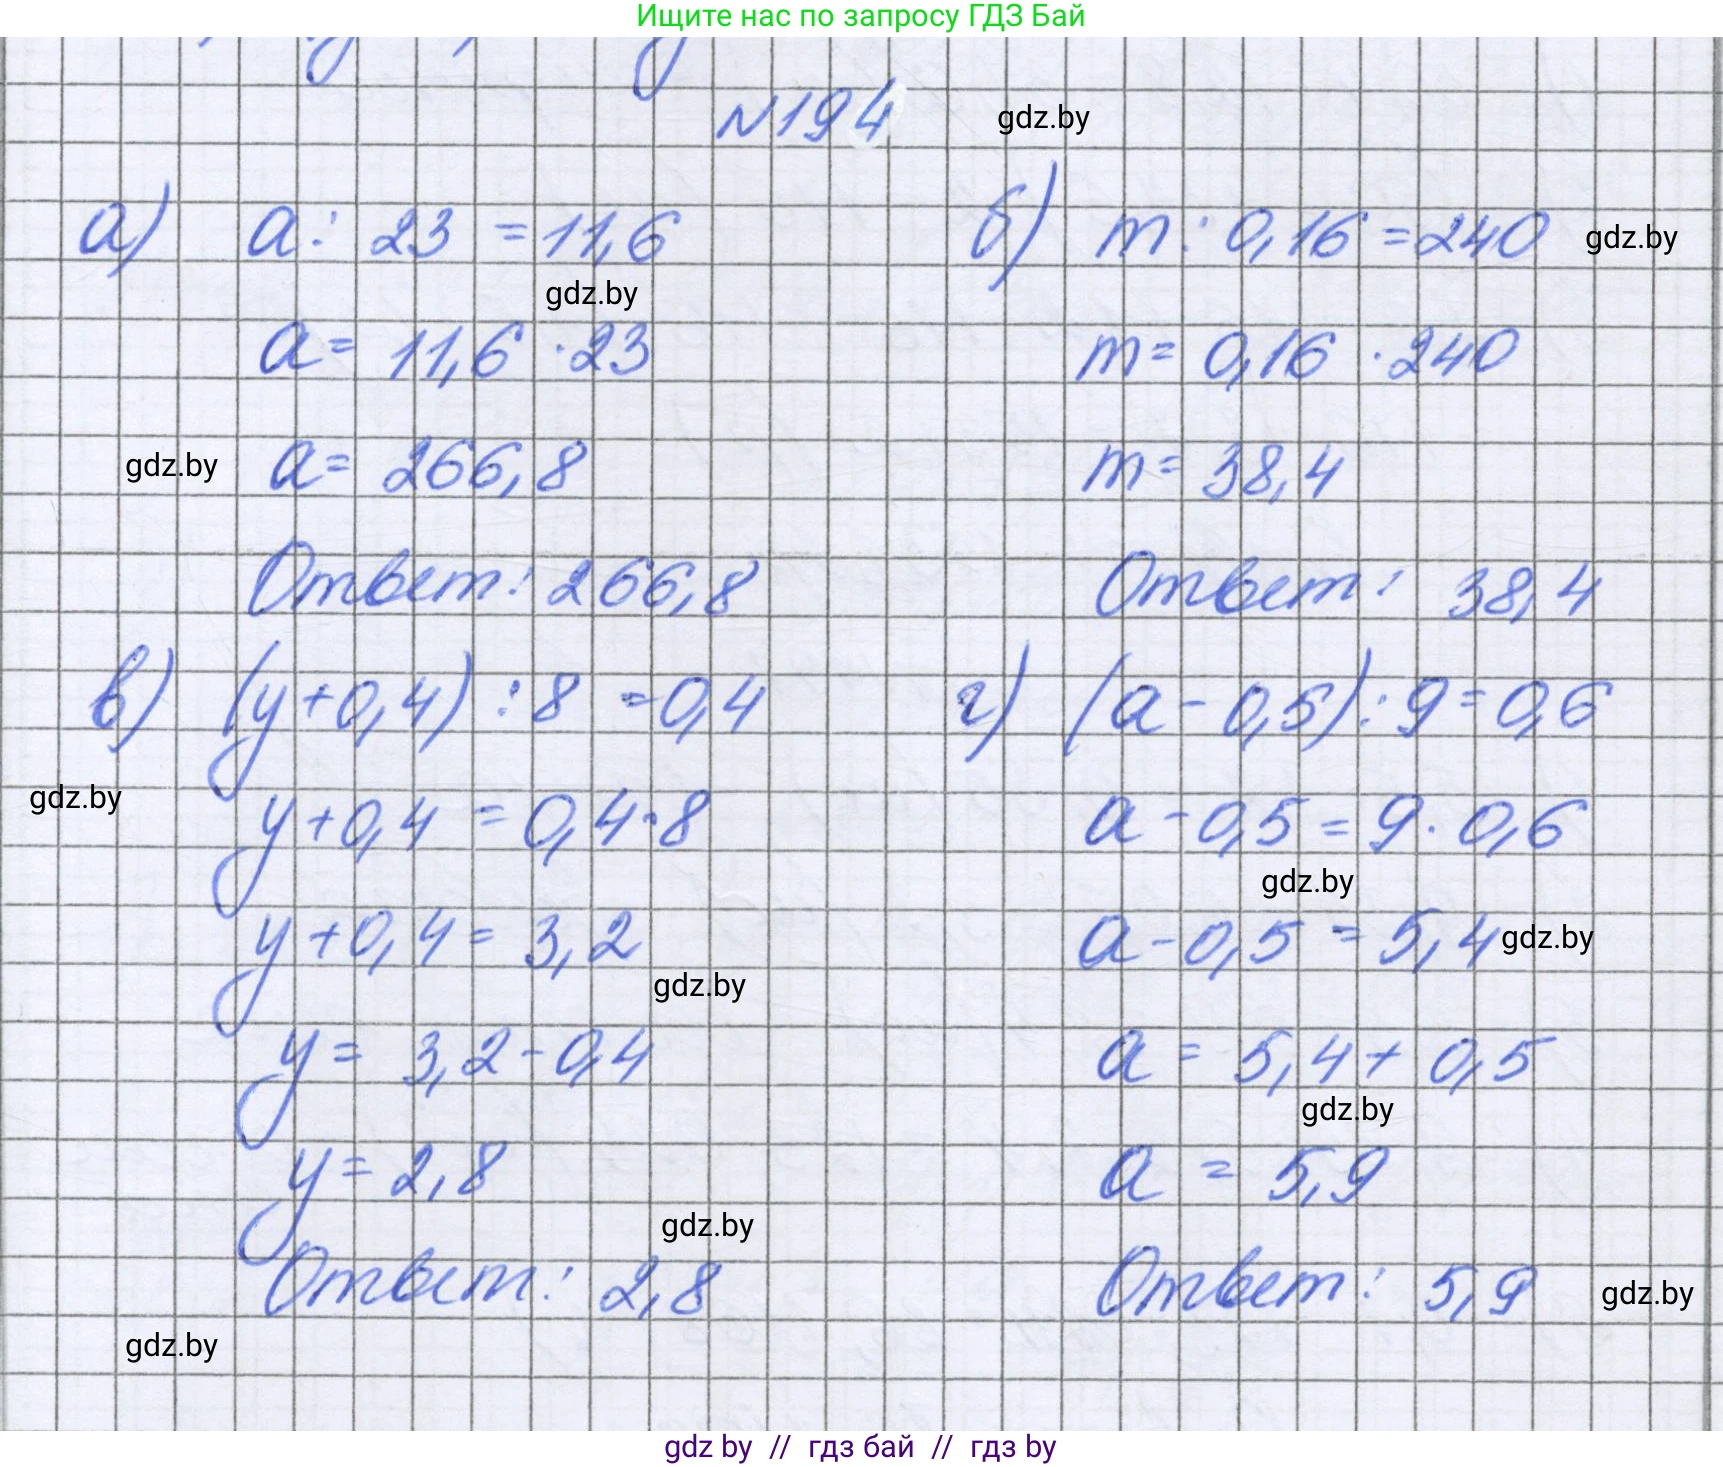 Ищите нас по запросу ГДЗ Бай
№194 gdz.by
а) a : 23 = 11,6
gdz.by
a = 11,6 · 23
gdz.by a = 266,8
Ответ: 266,8
б) m : 0,16 = 240 gdz.by
m = 0,16 · 240
m = 38,4
Ответ: 38,4
в) (y + 0,4) : 8 = 0,4
gdz.by
y + 0,4 = 0,4 · 8
y + 0,4 = 3,2
gdz.by
y = 3,2 - 0,4
y = 2,8
gdz.by
Ответ: 2,8
gdz.by
г) (a - 0,5) : 9 = 0,6
a - 0,5 = 9 · 0,6
gdz.by
a - 0,5 = 5,4 gdz.by
a = 5,4 + 0,5
gdz.by
a = 5,9
Ответ: 5,9 gdz.by
gdz by // гдз бай // гдз by